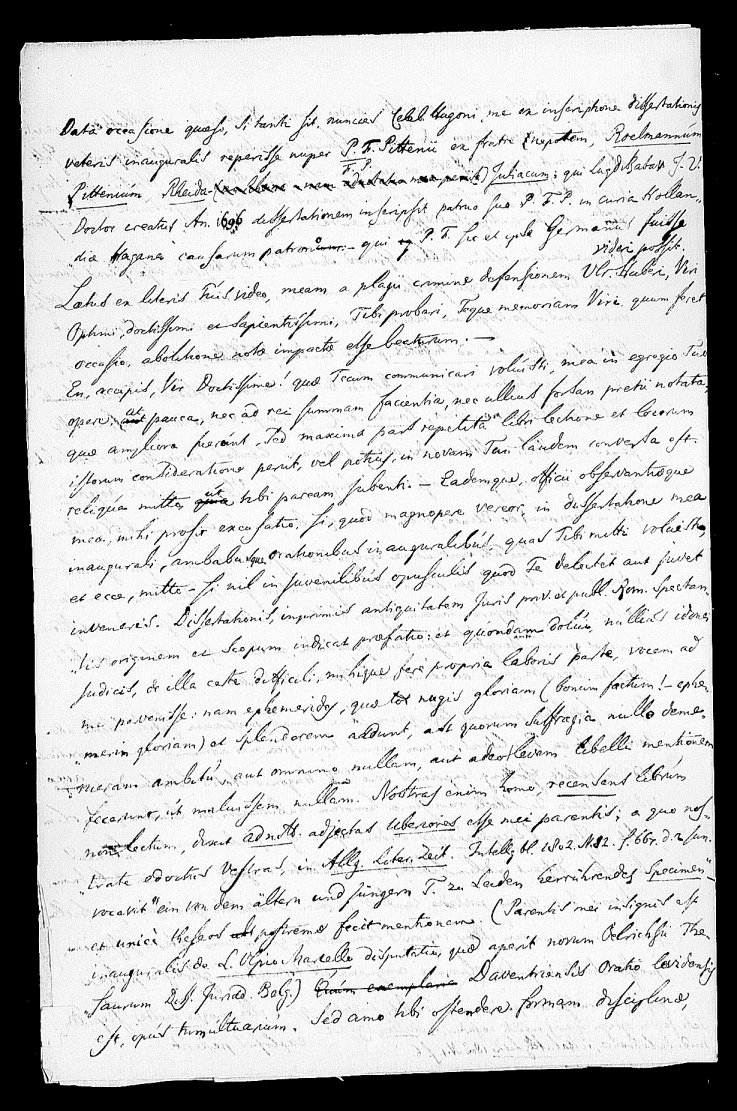 Datâ occasione quaeso, si tanti sit, nuncies Celeb. Hugoni, me ex inscriptione dissertationis
veteris inauguralis reperisse nuper P. F. Pittenii ex fratre nepotem, Roelmannum
F. P.
Pittenium, Rheida- Juliacum: qui Lugd. Batav. J. U.
Doctor creatus An. 1696 dissertationem inscripsit patruo suo P. F. P. in curia Hollan-
diae Hagana causarum patrono. - qui P. F. sic et ipse Germanus fuisse
videri possit.
Laetus ex literis Tuis video, meam a plagii crimine defensionem Ulr. Huberi, Viri
Optimi, doctissimi et sapientissimi, Tibi probari, Teque memoriam Viri, quum feret
occasio, abolitione notae impactae esse
En, accipis, Vir Doctissime! quae Tecum communicari voluisti, mea in egregio Tuo
opere, at pauca, nec ad rei summam facientia, nec ullius forsan pretii notata,
quae ampliora fuerunt, sed maxima pars repetitâ libri lectione et locorum
istorum consideratione periit, vel potius, in novam Tui laudem conversa est.
reliqua mitto, ut tibi paream jubenti. - Eademque, officii observantiaeque
mea, mihi prosit excusatio, si, quod magnopere vereor, in dissertatione mea
inaugurali, ambabusque orationibus inauguralibus, quas Tibi mitti voluisti,
et ecce, mitto - si nil in juvenilibus opusculis quod Te delectet aut juvet
inveneris. Dissertationis, inprimis antiquitatem Juris priv. et publ. Rom. spectan-
tis originem et scopum indicat praefatio: at quondam dolui, nullius idonei
judicis, de illa certe difficili, mihique fere propria laboris parte, vocem ad
me pervenisse: nam ephemerides, quae tot nugis gloriam (bonum factum! - ephe-
meram gloriam) et splendorem addunt, ast quorum suffragia nullo deme-
rueram ambitu, aut omnino nullam, aut adeo levem libelli mentionem
fecerunt, ut maluissem nullam. Nostras enim homo, recensens librum
non lectum, dixit adnott. adjectas uberiores esse mei parentis; a quo nos-
trate edoctus Vestras, in Allg. Liter. Zeit. Intellig. bl. 1802. N. 82. p. 667. d. 2 Jun.
vocavit "ein von dem ältern und jüngern T. zu Leiden herrührendes Specimen"
et unicè theseos postremae fecit mentionem. (Parentis mei insignis est
inauguralis de L. Ulpio Marcello disputatio, quae aperit novum Oelrichsii The-
saurum Diss. Jurid. Belg.) Daventriensis oratio levidensis
est, opus tumultuarium. Sed amo tibi ostendere formam disciplinae,